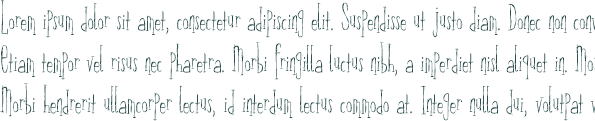 Lorem ipsum dolor sit amet, consectetur adipiscing elit. Suspendisse ut justo diam. Donec non conv
Etiam tempor vel risus nec pharetra. Morbi fringilla luctus nibh, a imperdiet nisl aliquet in. Mor
Morbi hendrerit ullamcorper lectus, id interdum lectus commodo at. Integer nulla dui, volutpat v